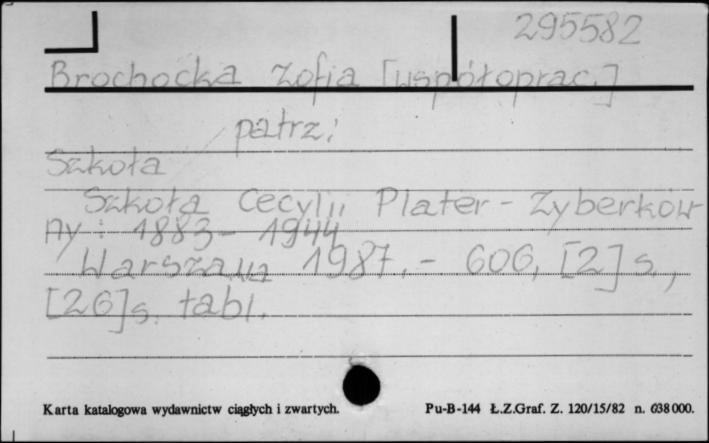 295582
Brochocka Zofia [współoprac.]
patrz:
Szkoła
Szkoła Cecylii Plater-Zyberków-
ny : 1883-1944
Warszawa 1987.- 606, [2] s.,
[26] s. tabl.
Karta katalogowa wydawnictw ciągłych i zwartych.
Pu-B-144 Ł.Z.Graf. Z. 120/15/82 n. 638 000.